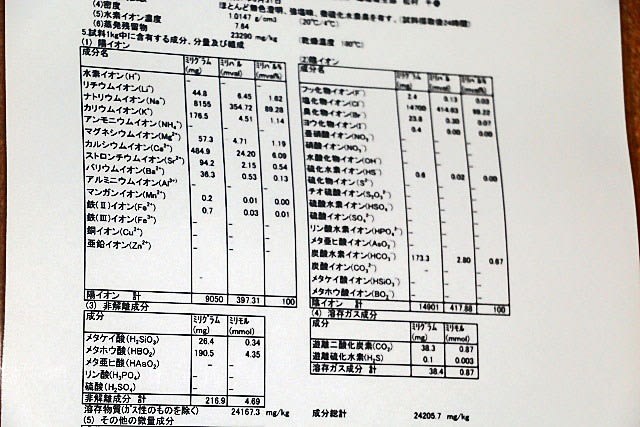 (4)密度
ほとんど無色澄明、強塩味、微硫化水素臭を有す。(試料採取後24時間)
(5)水素イオン濃度 1.0147 g/cm3 (20℃/4℃)
(6)蒸発残留物 7.64
23290 mg/kg (乾燥温度 180℃)
5.試料1kg中に含有する成分、分量及び組成
(1) 陽イオン
成分名 ミリグラム(mg) ミリバル(mval) ミリバル%(mval%)
水素イオン(H⁺)
リチウムイオン(Li⁺) 44.8 6.45 1.62
ナトリウムイオン(Na⁺) 8155 354.72 89.28
カリウムイオン(K⁺) 176.5 4.51 1.14
アンモニウムイオン(NH₄⁺) -
マグネシウムイオン(Mg²⁺) 57.3 4.71 1.19
カルシウムイオン(Ca²⁺) 484.9 24.20 6.09
ストロンチウムイオン(Sr²⁺) 94.2 2.15 0.54
バリウムイオン(Ba²⁺) 36.3 0.53 0.13
アルミニウムイオン(Al³⁺) -
マンガンイオン(Mn²⁺) 0.2 0.01 0.00
鉄(Ⅱ)イオン(Fe²⁺) 0.7 0.03 0.01
鉄(Ⅲ)イオン(Fe³⁺) -
銅イオン(Cu²⁺) -
亜鉛イオン(Zn²⁺) -
陽イオン 計 9050 397.31 100
(2)陰イオン
成分名 ミリグラム(mg) ミリバル(mval) ミリバル%(mval%)
フッ化物イオン(F⁻) 2.4 0.13 0.03
塩化物イオン(Cl⁻) 14700 414.63 99.22
臭化物イオン(Br⁻) 23.8 0.30 0.07
ヨウ化物イオン(I⁻) 0.4 0.00 0.00
亜硝酸イオン(NO₂⁻) -
硝酸イオン(NO₃⁻) -
水酸化物イオン(OH⁻) -
硫化水素イオン(HS⁻) 0.6 0.02 0.00
硫化物イオン(S²⁻) -
チオ硫酸イオン(S₂O₃²⁻) -
硫酸水素イオン(HSO₄⁻) -
硫酸イオン(SO₄²⁻) -
リン酸水素イオン(HPO₄²⁻) -
メタ亜ヒ酸イオン(AsO₂⁻) -
炭酸水素イオン(HCO₃⁻) 173.3 2.80 0.67
炭酸イオン(CO₃²⁻) -
メタケイ酸イオン(HSiO₃⁻) -
メタホウ酸イオン(BO₂⁻) -
陰イオン 計 14901 417.88 100
(3) 非解離成分
成分 ミリグラム(mg) ミリモル(mmol)
メタケイ酸(H₂SiO₃) 26.4 0.34
メタホウ酸(HBO₂) 190.5 4.35
メタ亜ヒ酸(HAsO₂) -
リン酸(H₃PO₄) -
硫酸(H₂SO₄) -
非解離成分 計 216.9 4.69
(4) 溶存ガス成分
成分 ミリグラム(mg) ミリモル(mmol)
遊離二酸化炭素(CO₂) 38.3 0.87
遊離硫化水素(H₂S) 0.1 0.003
溶存ガス成分 計 38.4 0.87
溶存物質(ガス性のものを除く) 24167.3 mg/kg 成分総計 24205.7 mg/kg
(5) その他の微量成分